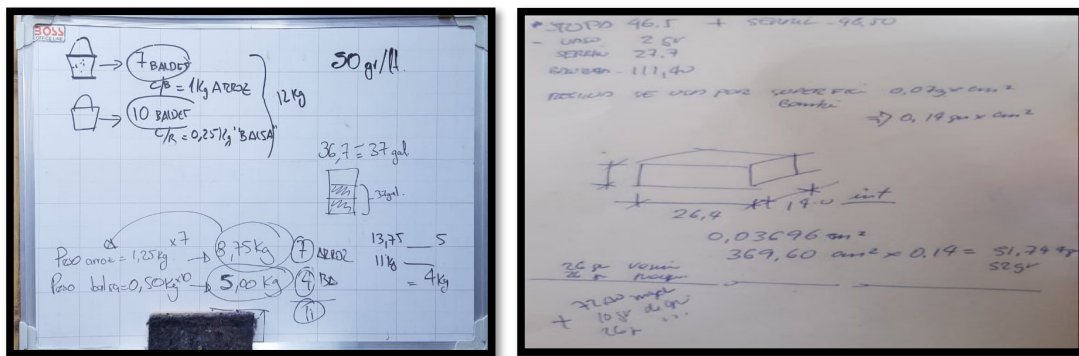 BOSS
7 BALDES
C/B = 1Kg ARROZ
10 BALDES
C/R = 0,25 Kg "BALSA"
12Kg
50 gr/lt.
36,7 = 37 gal
37gal.
Peso arroz = 1,25Kg x7 8,75Kg 7 ARROZ
Peso balsa = 0,50Kg x10 5,00 Kg 4 BA
11
13,75 5
11Kg = 4Kg
46.5 + 46,50
- VASO 2 gr
SERRIN 27.7
111,40
RESINA SE USA POR SUPERFICI 0,07gr x cm²
0,14 gr x cm²
26,4 14.0 int
0,03696 m²
369,60 cm² x 0.14 = 51,744g
52gr
26 gr
26 gr
+ 10 gr
26 gr